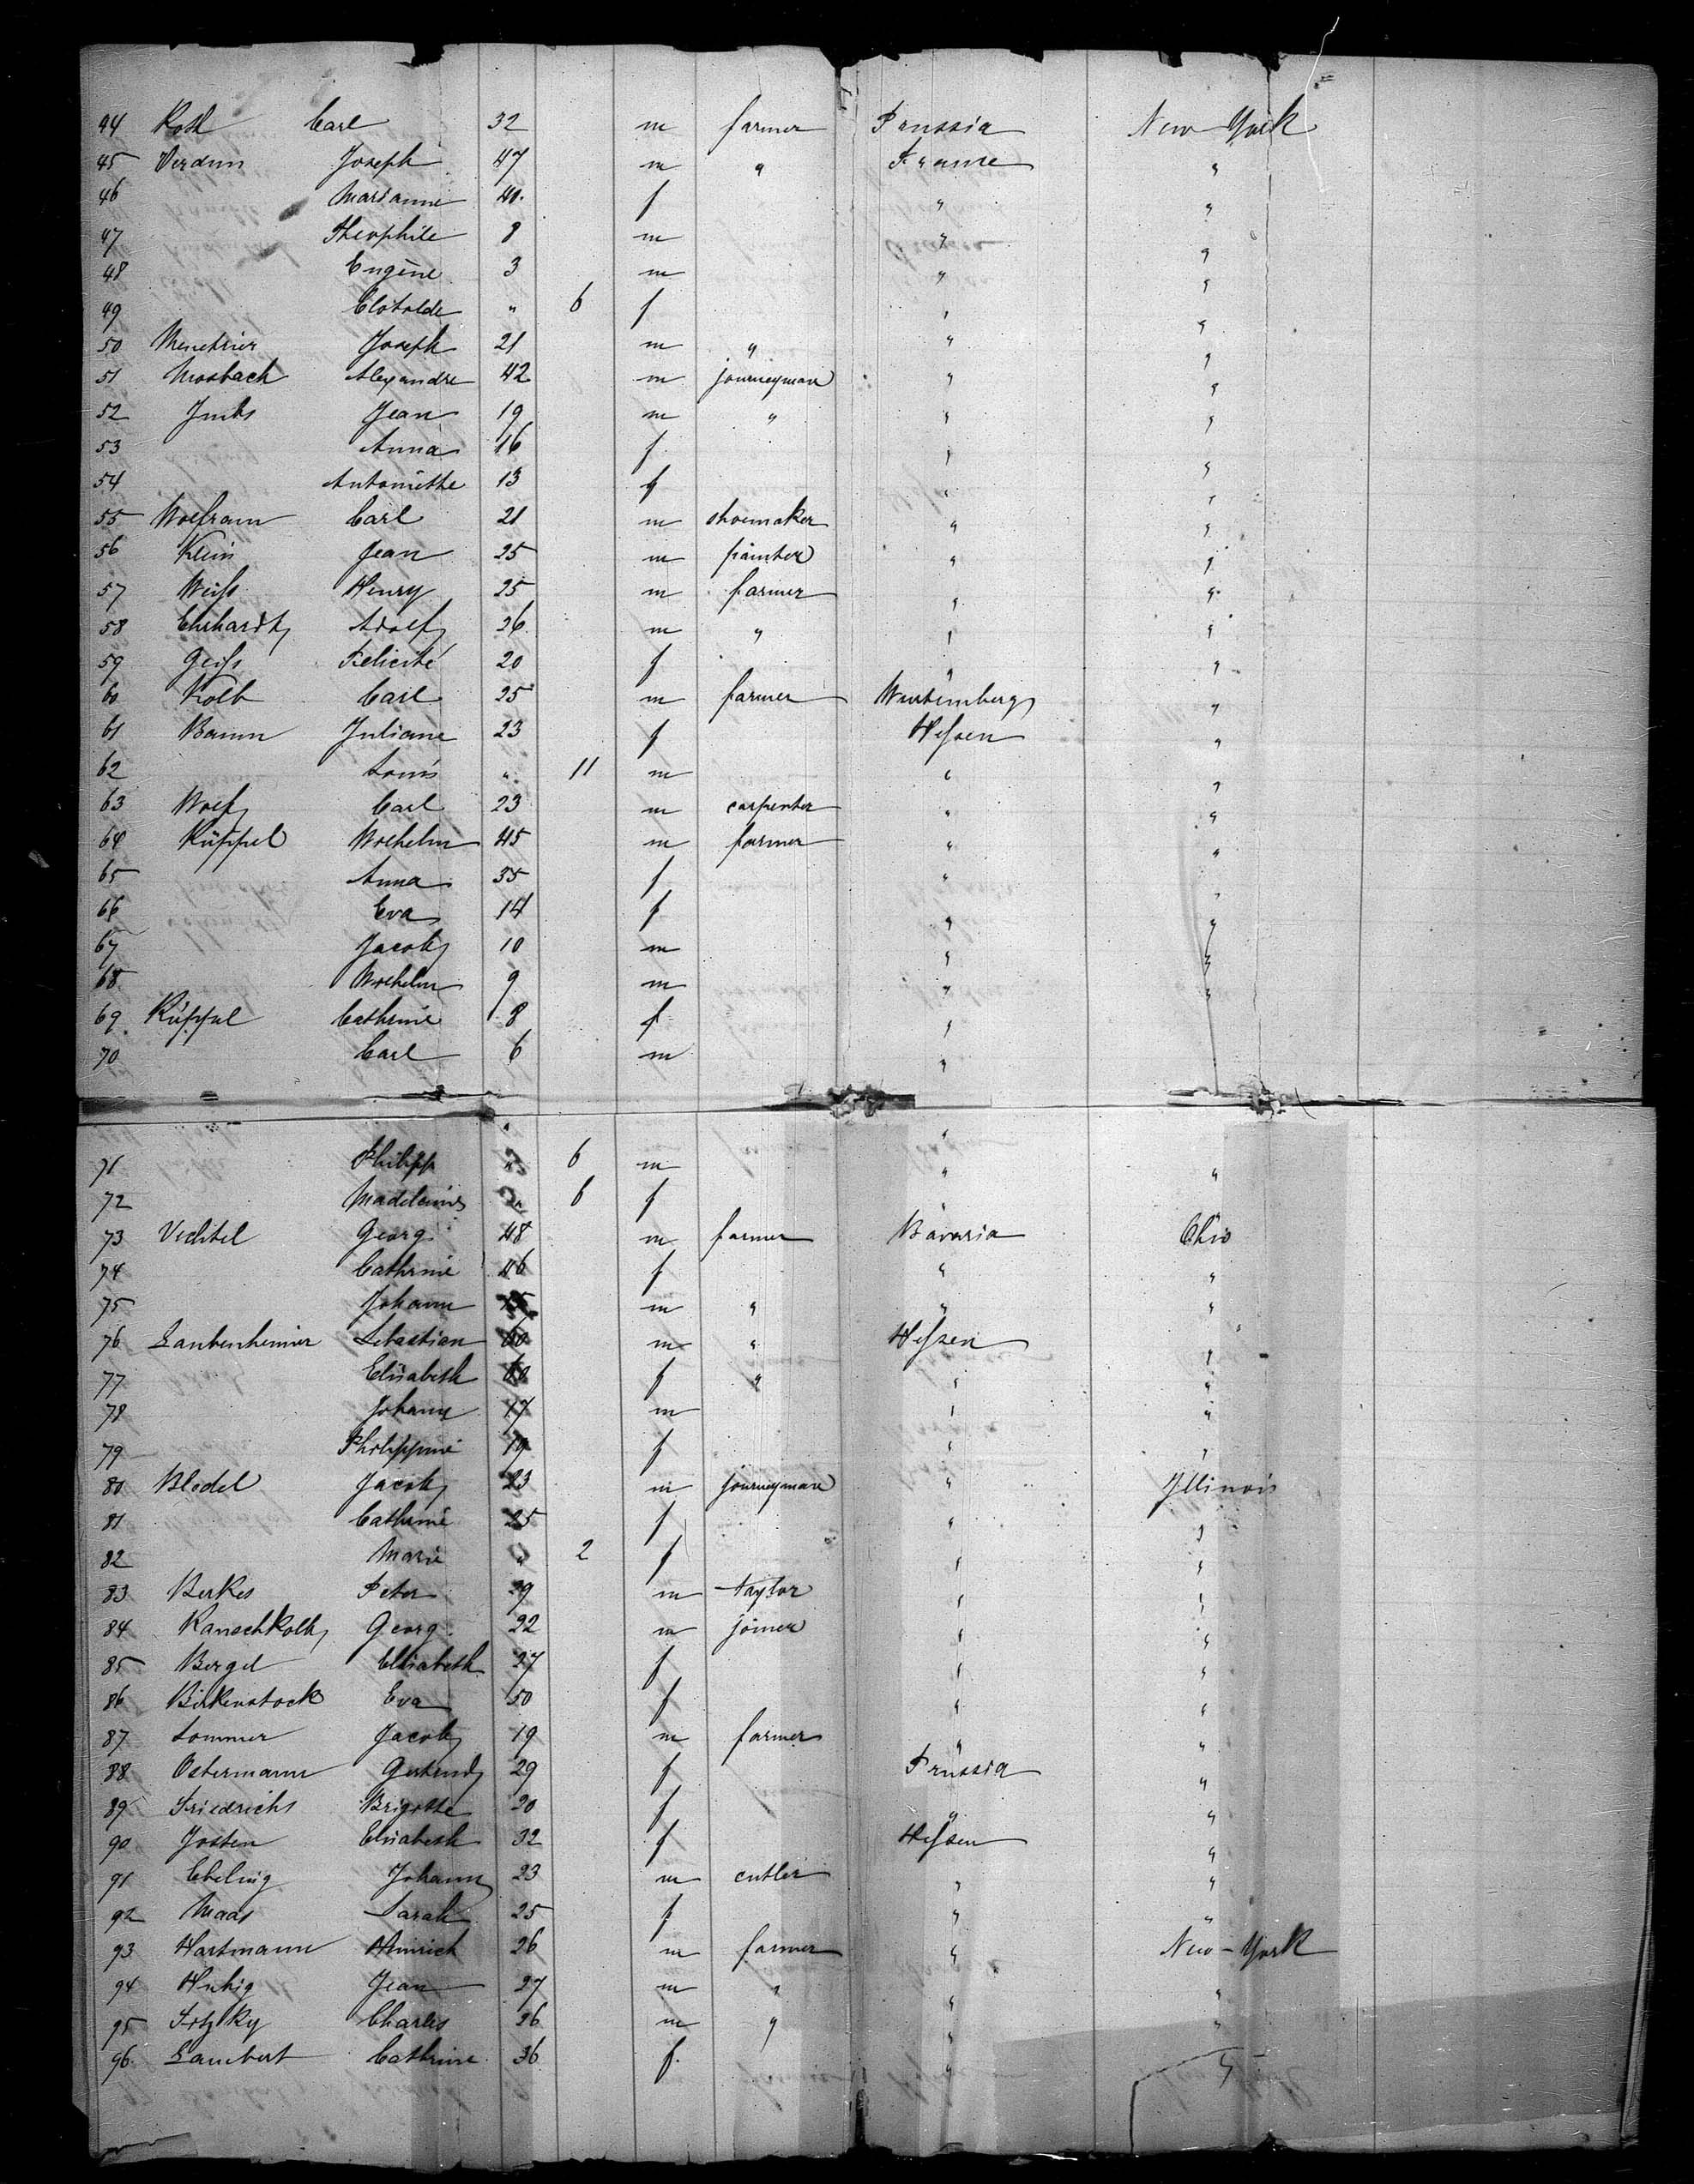 44 Roth Carl 32 m farmer Prussia New-York
45 Verdun Joseph 47 m " France "
46 Marianne 40 f " "
47 Theophile 8 m " "
48 Eugène 3 m " "
49 Clotolde " 6 f " "
50 Menetrier Joseph 21 m " " "
51 Mosbach Alexandre 42 m journeyman " "
52 Jmbs Jean 19 m " " "
53 Anna 16 f " "
54 Antoinette 13 f " "
55 Wolfram Carl 21 m shoemaker " "
56 Klein Jean 25 m painter " "
57 Weiss Henry 25 m farmer " "
58 Ehrhardt Adolf 26 m " " "
59 Geiss Felicité 20 f " "
60 Kolb Carl 25 m farmer Wurtemberg "
61 Baum Juliane 23 f Hessen "
62 Louis " 11 m " "
63 Wolf Carl 23 m carpenter " "
64 Rüppel Wilhelm 45 m farmer " "
65 Anna 35 f " "
66 Eva 14 f " "
67 Jacob 10 m " "
68 Wilhelm 9 m " "
69 Rüppel Cathrine 8 f "
70 Carl 6 m "
71 Philipp " 6 m " "
72 Madeleine " 6 f " "
73 Vechtel Georg 48 m farmer Bavaria Ohio
74 Cathrine 46 f " "
75 Johann m " " "
76 Laubenheimer Sebastian 60 m " Hessen "
77 Elisabeth f " " "
78 Johann 17 m " "
79 Philippine 19 f " "
80 Bledel Jacob 23 m journeyman " Jllinois
81 Cathrine 25 f " "
82 Marie " 2 f " "
83 Berkes Peter 29 m taylor " "
84 Georg 22 m joiner " "
85 Bergel Elisabeth 27 f " "
86 Birkenstock Eva 50 f " "
87 Sommer Jacob 19 m farmer " "
88 Ostermann Gertrud 29 f Prussia "
89 Friedrichs Brigitte 20 f " "
90 Josten Elisabeth 32 f Hessen "
91 Ebeling Johann 23 m cutler " "
92 Maas Sarah 25 f " "
93 Hartmann Heinrich 26 m farmer " New-York
94 Jean 27 m " " "
95 Charles 26 m " " "
96 Lambert Cathrine 36 f " "